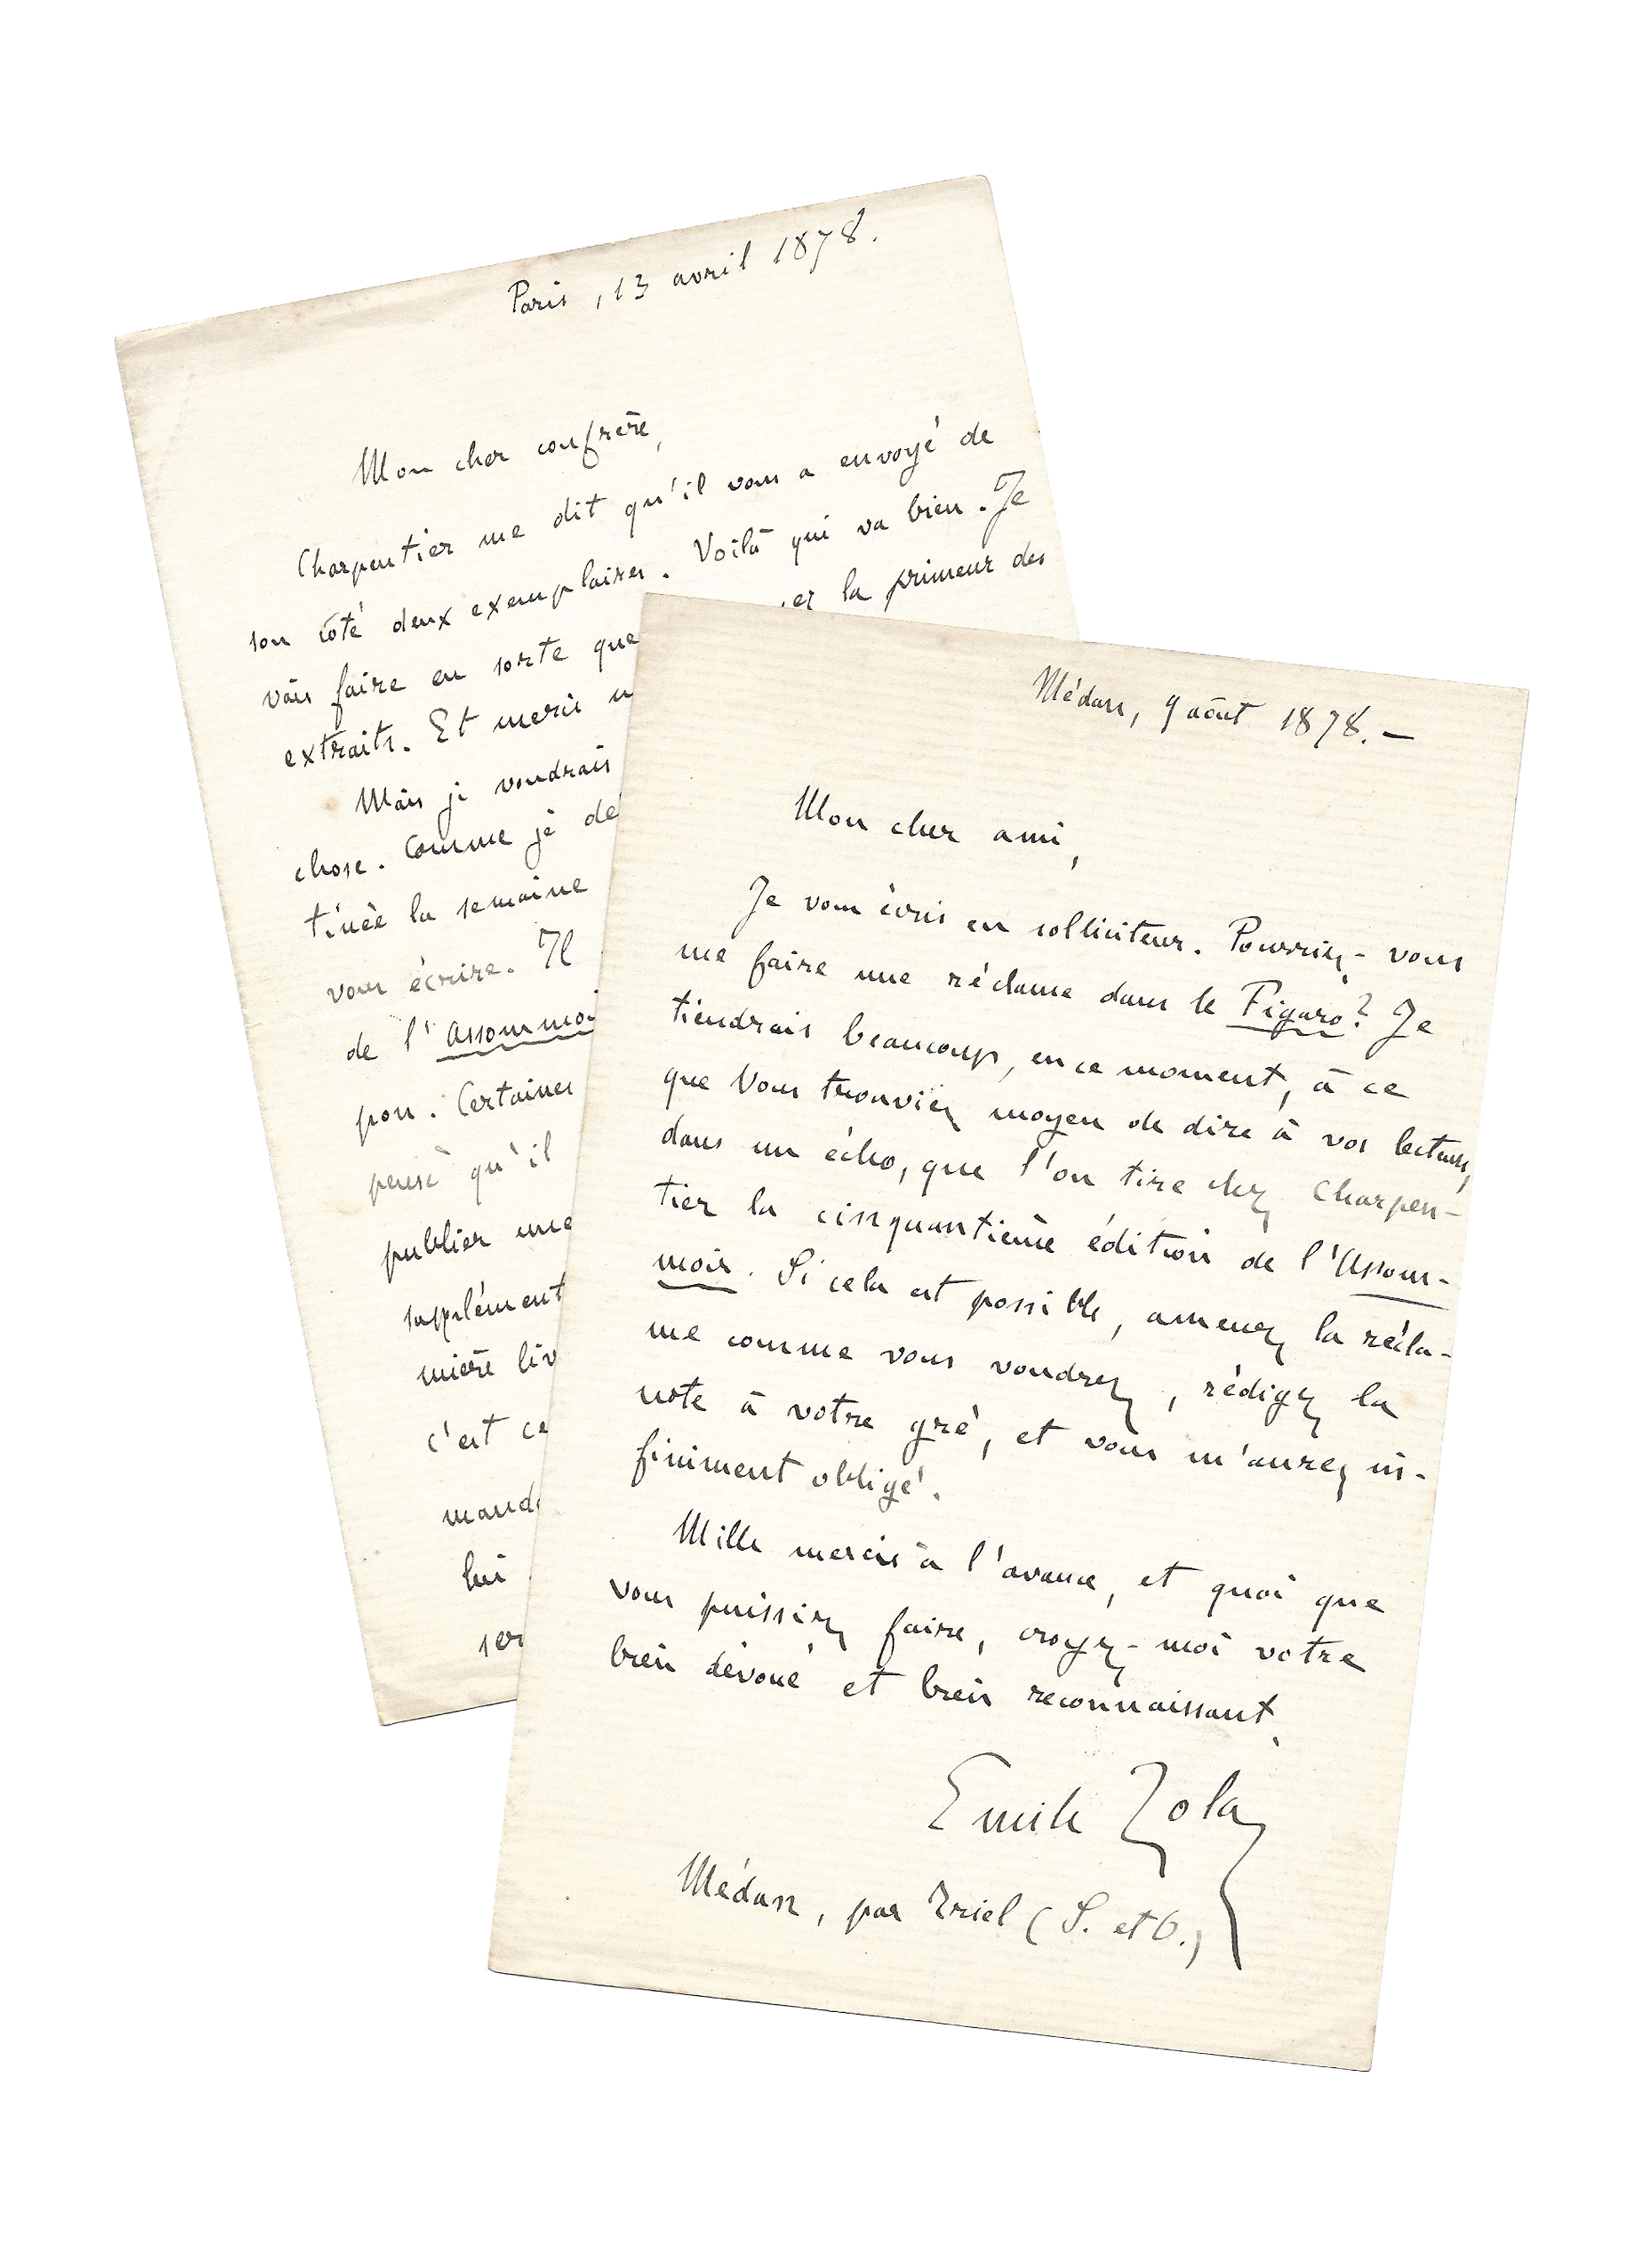 Paris, 13 avril 1878.
Mon cher confrère,
Charpentier me dit qu'il vous a envoyé de
son côté deux exemplaires. Voilà qui va bien. Je
vais faire en sorte que ez la primeur des
extraits. Et merci
Mais je voudrais
chose. Comme je
tinée la semaine
vous écrire. Il
de l'Assommoi
pon. Certaines
pensé qu'il
publier une
supplément
mière liv
c'est ce
mande
lui
ser
Médan, 9 août 1878. —
Mon cher ami,
Je vous écris en solliciteur. Pourriez-vous
me faire une réclame dans le Figaro? Je
tiendrais beaucoup, en ce moment, à ce
que vous trouviez moyen de dire à vos lecteurs,
dans un écho, que l'on tire chez Charpen-
tier la cinquantième édition de l'Assom-
moir. Si cela est possible, amenez la récla-
me comme vous voudrez, rédigez la
note à votre gré, et vous m'aurez in-
finiment obligé.
Mille mercis à l'avance, et quoi que
vous puissiez faire, croyez-moi votre
bien dévoué et bien reconnaissant.
Emile Zola
Médan, par Triel (S. et O.)